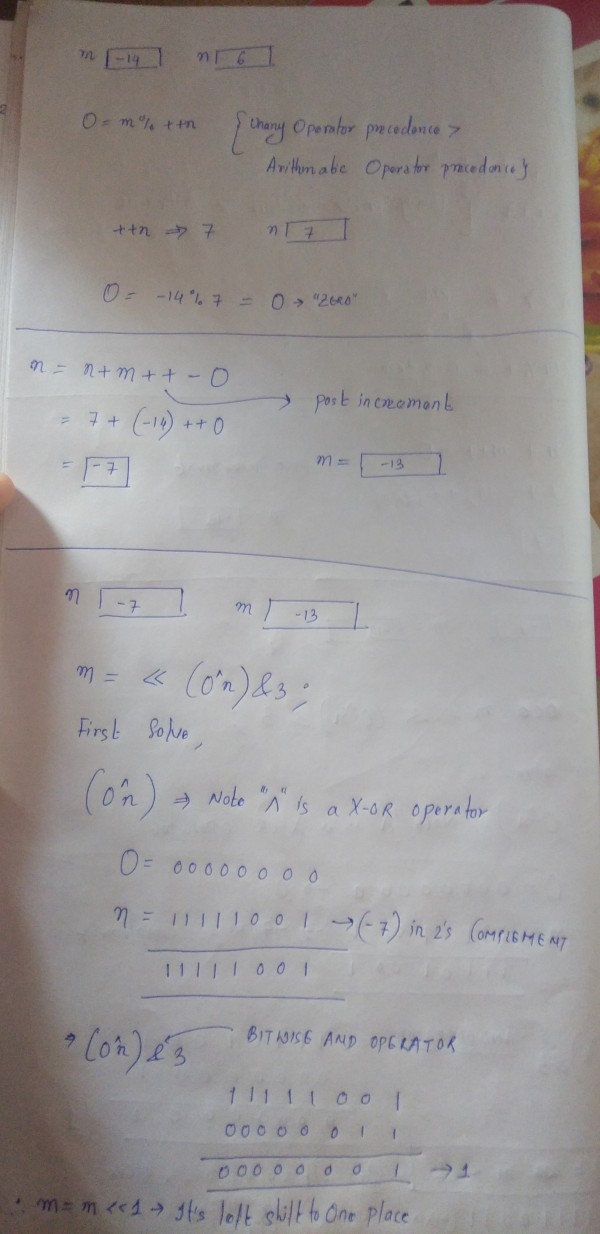 m -14 n 6
O = m % ++n { Unary Operator precedence >
Arithmabic Operator precedence }
++n ⇒ 7 n 7
O = -14 % 7 = 0 → "ZERO"
n = n + m + + - O → post increament
= 7 + (-14) ++ 0
= -7 m = -13
n -7 m -13
m = << (O^n) & 3 ;
First Solve,
(O^n) ⇒ Note "^" is a X-OR operator
O = 0 0 0 0 0 0 0 0
n = 1 1 1 1 1 0 0 1 → (-7) in 2's COMPLEMENT
1 1 1 1 1 0 0 1
→ (O^n) & 3 BITWISE AND OPERATOR
1 1 1 1 1 0 0 1
0 0 0 0 0 0 1 1
0 0 0 0 0 0 0 1 → 1
∴ m = m << 1 → It's left shift to One place